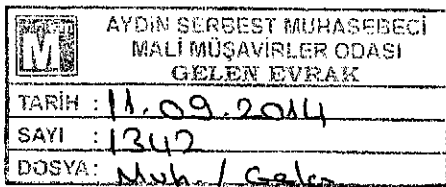 AYDIN SERBEST MUHASEBECİ
MALİ MÜŞAVİRLER ODASI
GELEN EVRAK
TARİH : 11.09.2014
SAYI : 1342
DOSYA: Muh. / Gelen